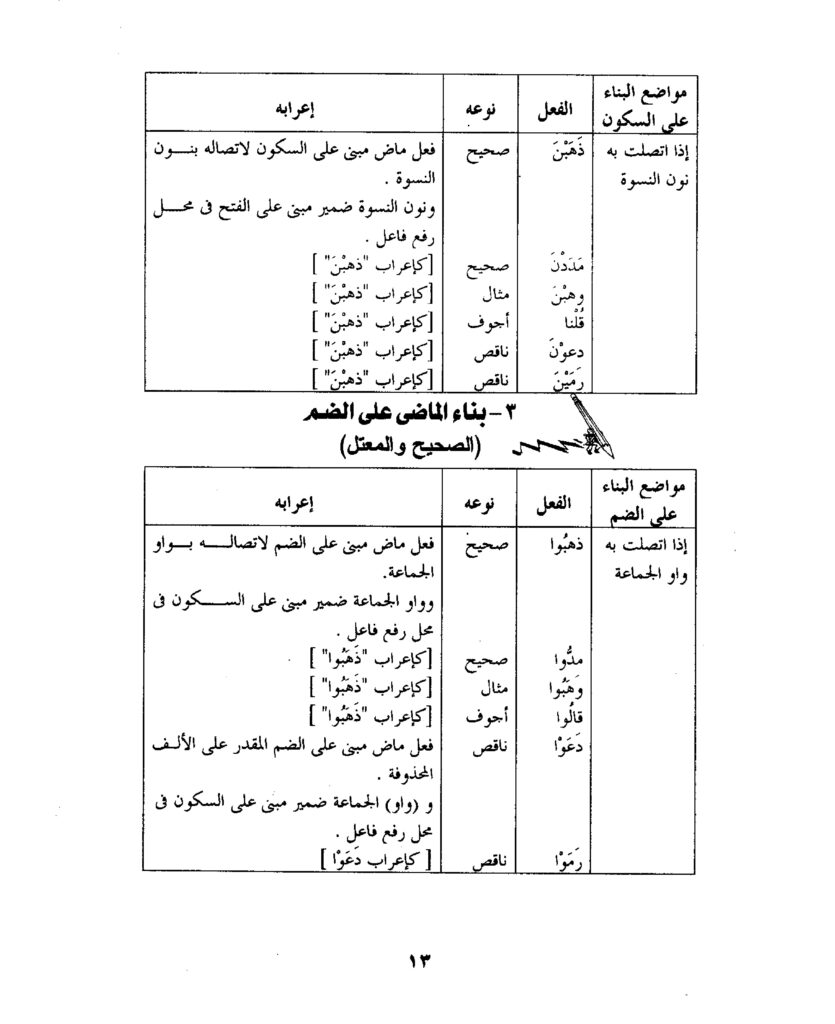 مواضع البناء على السكون | الفعل | نوعه | إعرابه
إذا اتصلت به | ذَهَبْنَ | صحيح | فعل ماض مبنى على السكون لاتصاله بنون
نون النسوة | النسوة .
ونون النسوة ضمير مبنى على الفتح فى محل
رفع فاعل .
مَدَدْنَ | صحيح | [كإعراب "ذهبْنَ" ]
وهبْنَ | مثال | [كإعراب "ذهبْنَ" ]
قُلْنا | أجوف | [كإعراب "ذهبْنَ" ]
دعوْنَ | ناقص | [كإعراب "ذهبْنَ" ]
رَمَيْنَ | ناقص | [كإعراب "ذهبْنَ" ]
٣- بناء الماضى على الضم
(الصحيح والمعتل)
مواضع البناء على الضم | الفعل | نوعه | إعرابه
إذا اتصلت به | ذهبُوا | صحيح | فعل ماض مبنى على الضم لاتصاله بواو
واو الجماعة | الجماعة.
وواو الجماعة ضمير مبنى على السكون فى
محل رفع فاعل .
مدُّوا | صحيح | [كإعراب "ذَهَبُوا" ]
وَهَبُوا | مثال | [كإعراب "ذَهَبُوا" ]
قالُوا | أجوف | [كإعراب "ذَهَبُوا" ]
دَعَوْا | ناقص | فعل ماض مبنى على الضم المقدر على الألف
المحذوفة .
و (واو) الجماعة ضمير مبنى على السكون فى
محل رفع فاعل .
رَمَوْا | ناقص | [ كإعراب دَعَوْا ]
١٣